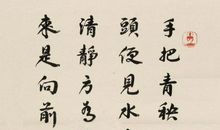 手把青秧
頭便見水
清靜方為
來是向前